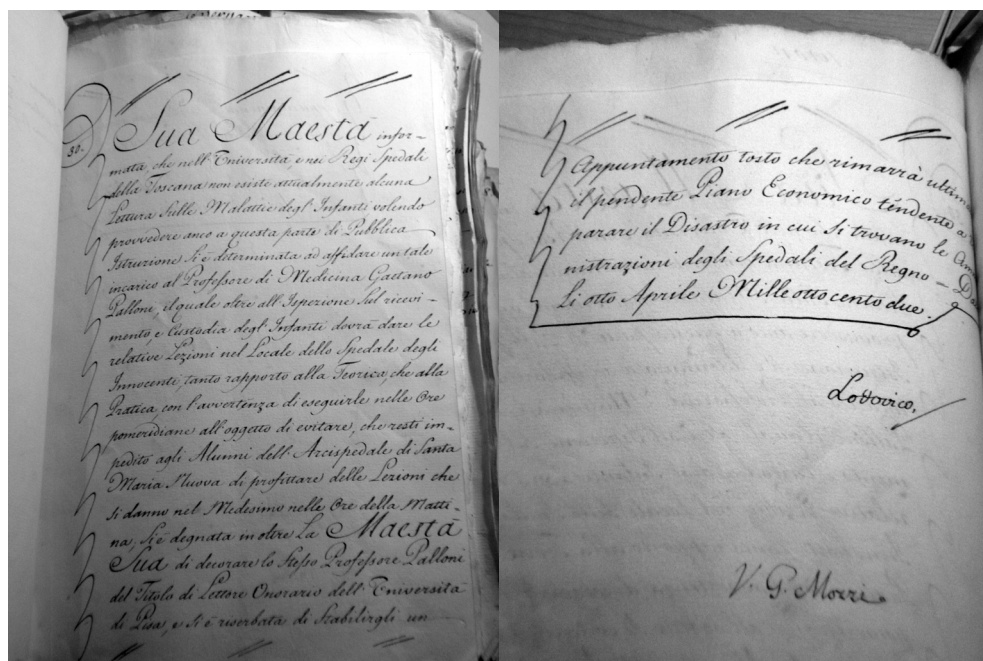 30.
Sua Maestà infor-
mata, che nell'Università, e nei Regj Spedali
della Toscana non esiste attualmente alcuna
Lettura sulle Malattie degl'Infanti volendo
provvedere anco a questa parte di Pubblica
Istruzione si è determinata ad affidare un tale
incarico al Professore di Medicina Gaetano
Palloni, il quale oltre all'Ispezione sul ricevi-
mento, e Custodia degl'Infanti dovrà dare le
relative Lezioni nel Locale dello Spedale degli
Innocenti, tanto rapporto alla Teorica, che alla
Pratica, con l'avvertenza di eseguirle nelle Ore
pomeridiane all'oggetto di evitare, che resti im-
pedito agli Alunni dell'Arcispedale di Santa
Maria Nuova di profittare delle Lezioni che
si danno nel Medesimo nelle Ore della Matti-
na; Si è degnata in oltre La Maestà
Sua di decorare lo Stesso Professore Palloni
del Titolo di Lettore Onorario dell'Università
di Pisa, e si è riserbata di Stabilirgli un
Appuntamento tosto che rimarrà ultim
il pendente Piano Economico tendente a
parare il Disastro in cui si trovano le Am
nistrazioni degli Spedali del Regno - Da
Li otto Aprile Mille otto cento due.
Lodovico,
V. G. Morri.